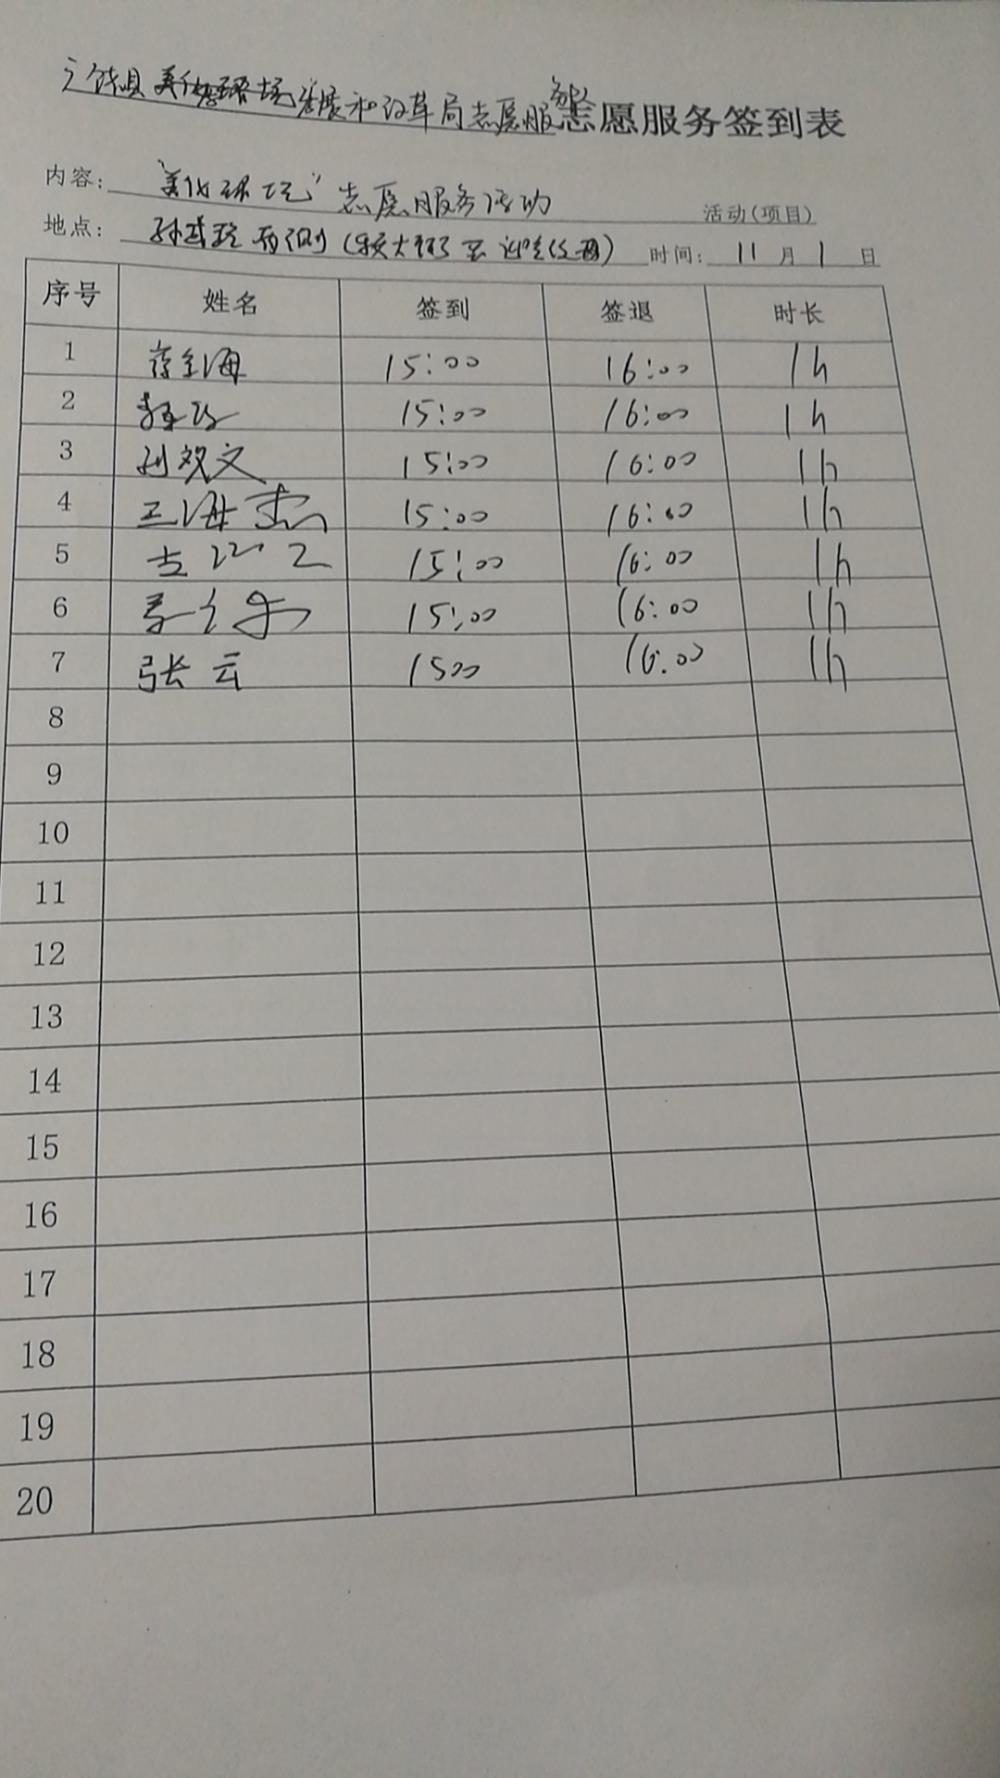 发展和改革局志愿服务志愿服务签到表
内容: "美化环境"志愿服务活动 活动(项目)
地点: 两侧 时间: 11月1日
序号 姓名 签到 签退 时长
1 海 15:00 16:00 1h
2 15:00 16:00 1h
3 刘观文 15:00 16:00 1h
4 王海杰 15:00 16:00 1h
5 15:00 16:00 1h
6 15:00 16:00 1h
7 张云 1500 16:00 1h
8
9
10
11
12
13
14
15
16
17
18
19
20